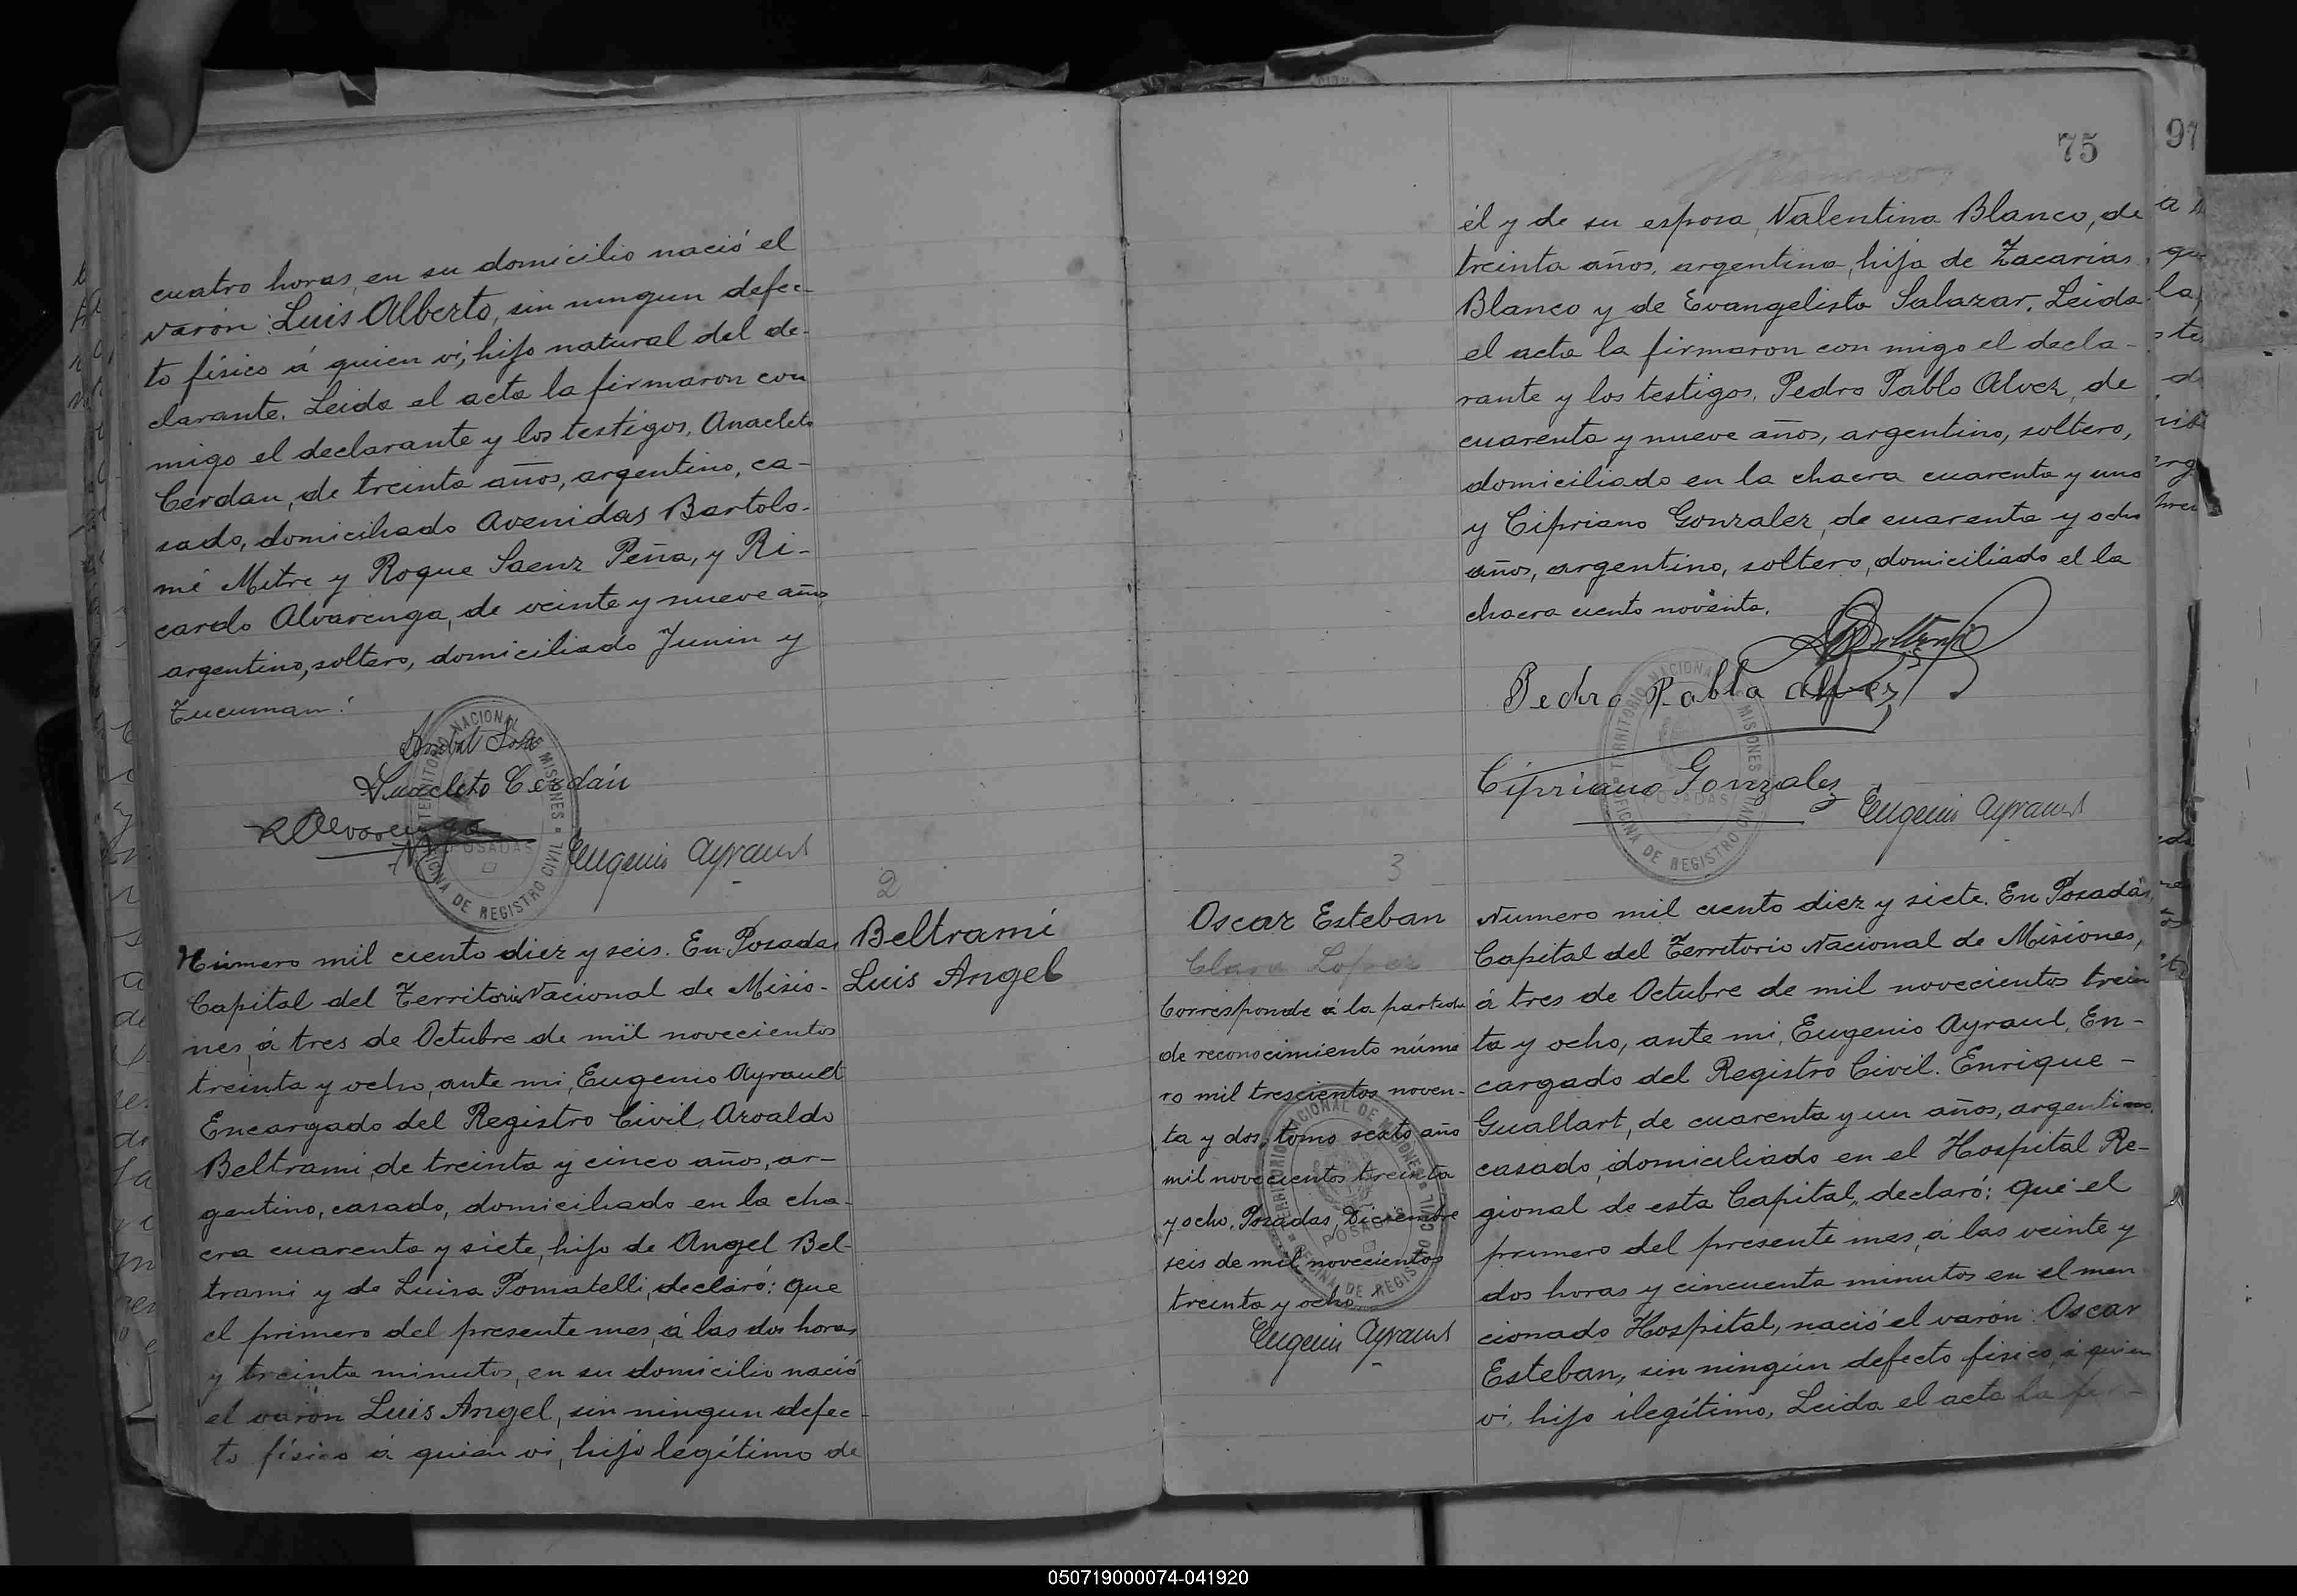 cuatro horas, en su domicilio nació el
varón: Luis Alberto, sin ningun defec-
to físico á quien ví, hijo natural del de-
clarante. Leida el acta la firmaron con
migo el declarante y los testigos, Anacleto
Cerdan, de treinta años, argentino, ca-
sado, domiciliado Avenidas Bartolo-
mé Mitre y Roque Saenz Peña, y Ri-
cardo Alvarenga, de veinte y nueve años
argentino, soltero, domiciliado Junin y
Tucuman.
Anacleto Cerdán
RAlvarenga
Eugenio Ayrault
TERRITORIO NACIONAL DE MISIONES
OFICINA DE REGISTRO CIVIL
POSADAS
2
Beltrami
Luis Angel
Número mil ciento diez y seis. En Posadas
Capital del Territorio Nacional de Misio-
nes, á tres de Octubre de mil novecientos
treinta y ocho, ante mi, Eugenio Ayrault
Encargado del Registro Civil, Aroaldo
Beltrami, de treinta y cinco años, ar-
gentino, casado, domiciliado en la cha-
cra cuarenta y siete, hijo de Angel Bel-
trami y de Luisa Pomatelli, declaró: que
el primero del presente mes, á las dos horas
y treinta minutos, en su domicilio nació
el varón Luis Angel, sin ningun defec-
to físico á quien vi, hijo legítimo de
75
97
él y de su esposa, Valentina Blanco, de
treinta años, argentina, hija de Zacarias
Blanco y de Evangelista Salazar. Leida
el acta la firmaron con migo el decla-
rante y los testigos, Pedro Pablo Alvez, de
cuarenta y nueve años, argentino, soltero,
domiciliado en la chacra cuarenta y uno
y Cipriano Gonzalez, de cuarenta y ocho
años, argentino, soltero, domiciliado el la
chacra ciento noventa.
Pedro Pablo Alvez
Cipriano Gonzalez
Eugenio Ayrault
TERRITORIO NACIONAL DE MISIONES
OFICINA DE REGISTRO CIVIL
POSADAS
3
Oscar Esteban
Clara Lopez
Corresponde á la partida
de reconocimiento núme
ro mil trescientos noven-
ta y dos, tomo sexto año
mil novecientos treinta
y ocho, Posadas, Diciembre
seis de mil novecientos
treinta y ocho
Eugenio Ayrault
TERRITORIO NACIONAL DE MISIONES
OFICINA DE REGISTRO CIVIL
POSADAS
Numero mil ciento diez y siete. En Posadas,
Capital del Territorio Nacional de Misiones,
á tres de Octubre de mil novecientos trein
ta y ocho, ante mi, Eugenio Ayraul, En-
cargado del Registro Civil. Enrique-
Guallart, de cuarenta y un años, argentino,
casado, domiciliado en el Hospital Re-
gional de esta Capital, declaró: que el
primero del presente mes, á las veinte y
dos horas y cincuenta minutos en el men
cionado Hospital, nació el varón: Oscar
Esteban, sin ningún defecto físico, á quien
vi, hijo ilegítimo, Leida el acta la fir-
050719000074-041920